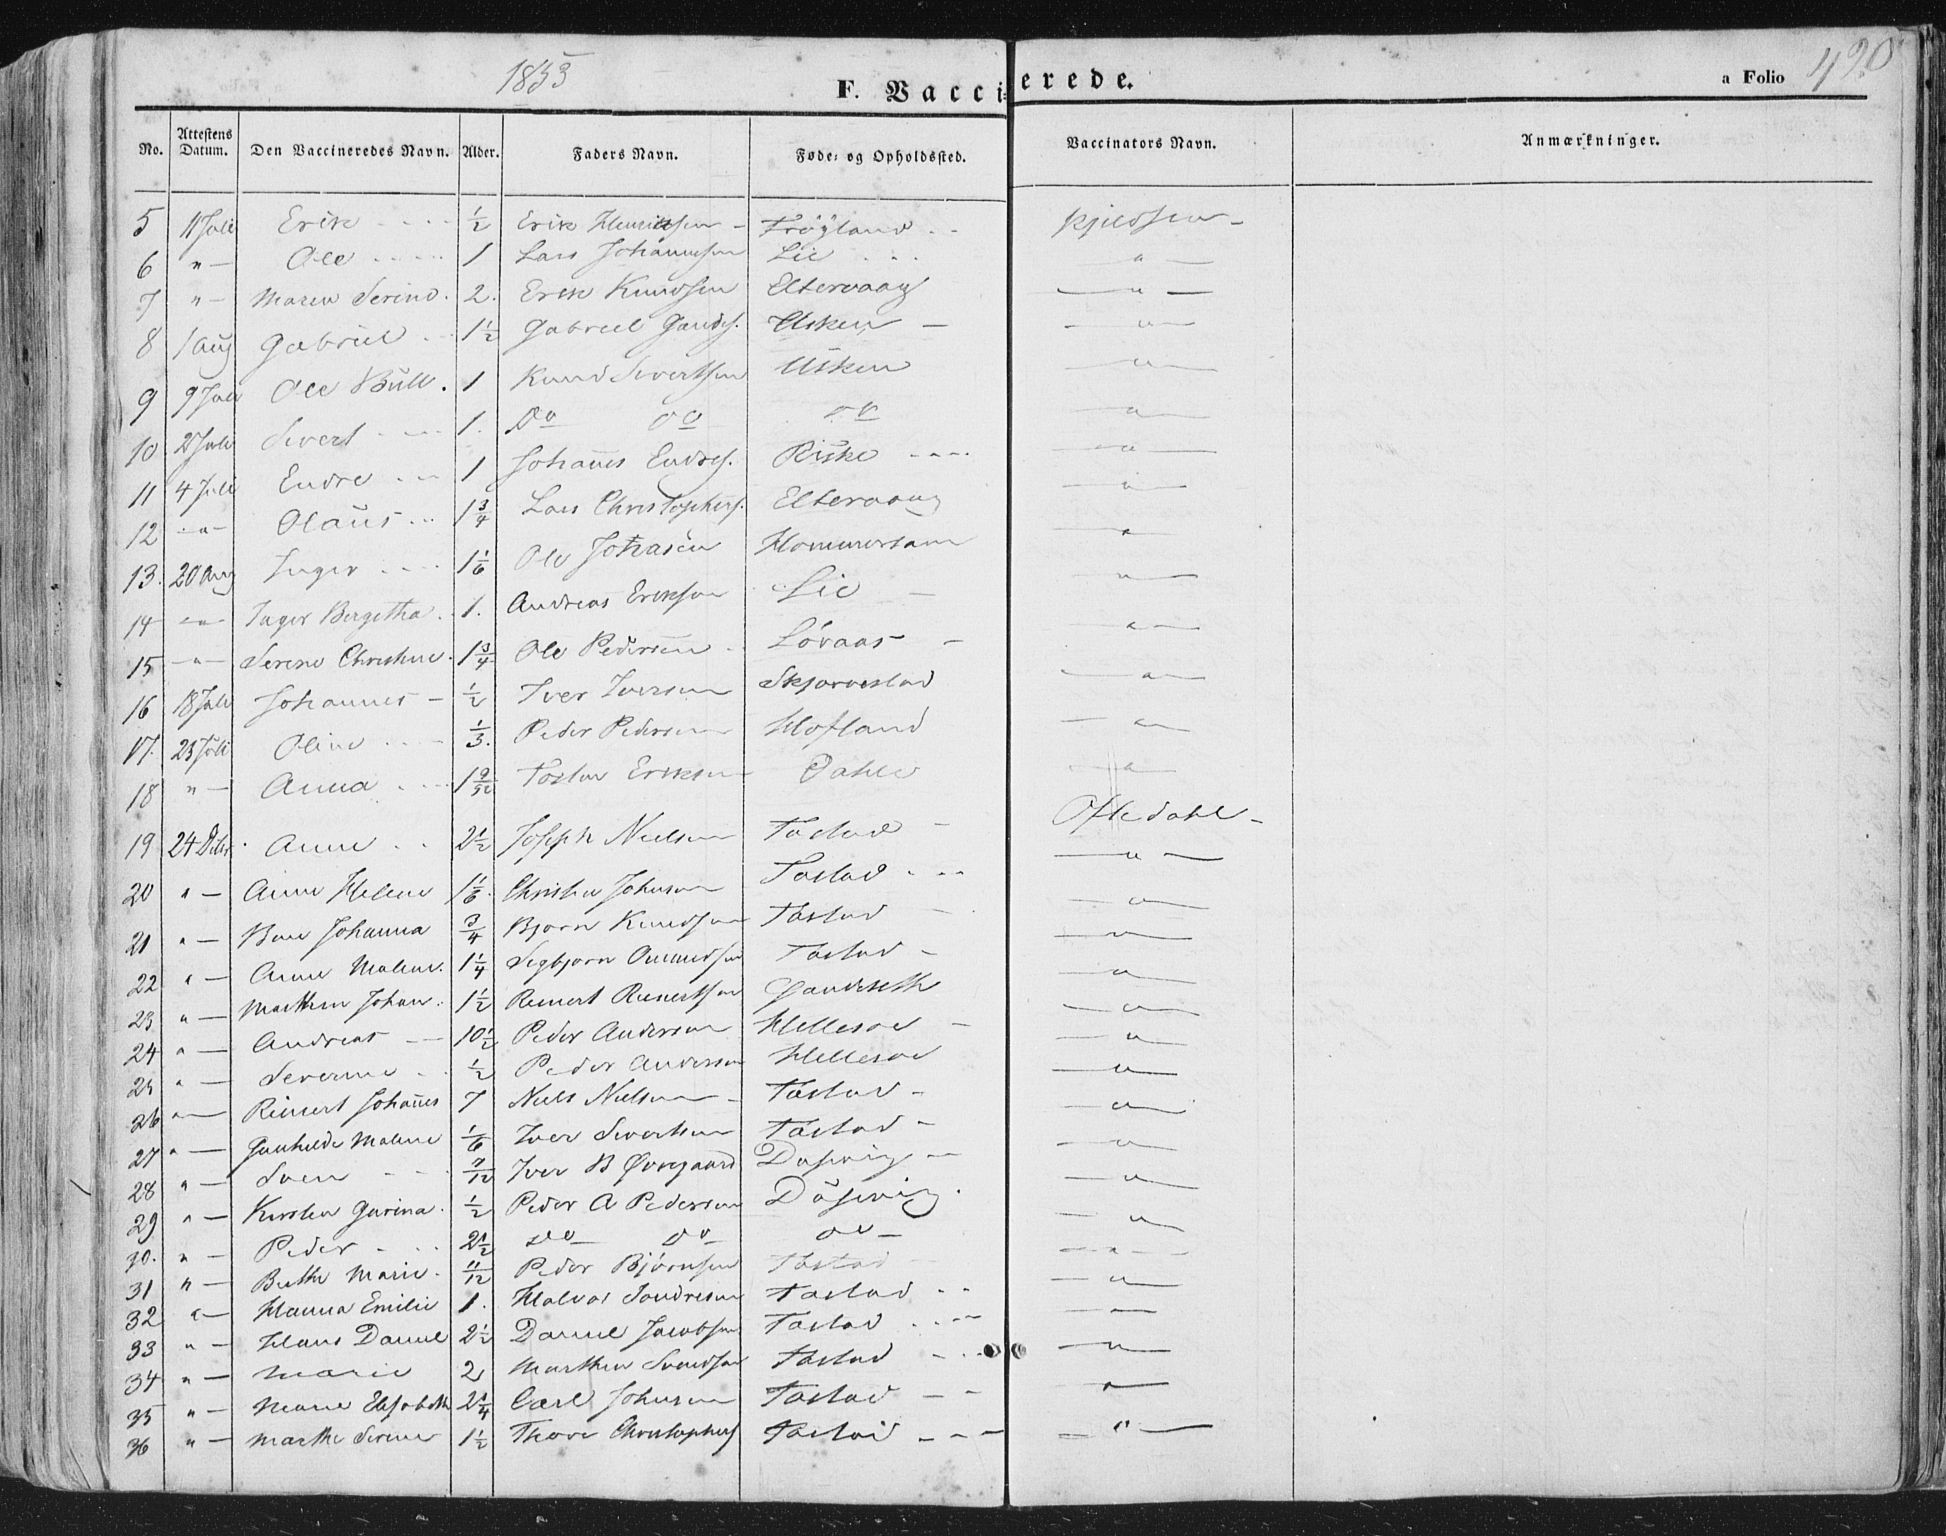 1855
F. Vaccinerede.
a Folio 490
No. Attestens Datum. Den Vaccineredes Navn. Alder. Faders Navn. Føde- og Opholdssted. Vaccinators Navn. Anmærkninger.
5 11 Juli Erik 1/2 Erik Henriksen Frøyland Kjeldsen
6 " Ole 1 Lars Johannesen Lie "
7 " Maren Serine 2. Erik Knudsen Eltervaag "
8 1 Aug Gabriel 1 1/2 Gabriel Usken "
9 9 Juli Ole Bull. 1 Knud Sivertsen Usken "
10 2 Juli Sivert 1. Do do do "
11 4 Juli Endre 1 Johañes Endres. Riske "
12 " Olaus 1 3/4 Lars Christophers. Eltervaag "
13. 20 Aug Inger 1 1/6 Ole Johasen Hommersam "
14 " Inger Bergetha 1. Andreas Eriksen Lie "
15 " Serene Christine 1 3/4 Ole Pedersen Løvaas "
16 18 Juli Johannes 1/2 Iver Iversen Skjørvestad "
17. 23 Juli Oline 1/3. Peder Pedersen Hofland "
18 " Anna Eriksen Dahle "
19 24 Anne 2 1/2 Joseph Nielsen Tastad Oftedahl
20 " Anne Helene 1 1/6. Christen Johnsen Tastad "
21 " Johanna 3/4 Bjørn Knudsen Tastad "
22 " Anne Malene. 1 1/4 Segbjørn Omundsen Tastad "
23 " Marthin Johan. 1 1/2 Reinert Reinertsen Gandeseth "
24 " Andreas 10 1/2 Peder Andersen Hellesøe "
25 " Severine 1/2 Peder Andersen Hellesøe "
26 " Reinert Johañes 7 Niels Nielsen Tastad "
27 " Gunhilde Malene 1/6 Iver Sivertsen Tastad "
28 " Sven 7/12 Iver B Øvregaard Dusevig "
29 " Kirsten Gurina. 1/2 Peder A Pedersen Dusevig. "
30. " Peder 2 1/2 do do do "
31 " Berthe Marie. 11/12 Peder Bjørnsen Tastad "
32 " Hanna Emilie 1. Halvor Sondresen Tastad "
33 " Hans Daniel 2 1/2 Daniel Jacobsen Tastad "
34 " Marie 2 Marthin Svendsen Tastad "
35 " Marie Elisabeth 2 1/4 Carl Johnsen Tastad "
36 " Marthe Serine 1 1/2 Thore Christophers Tastad "